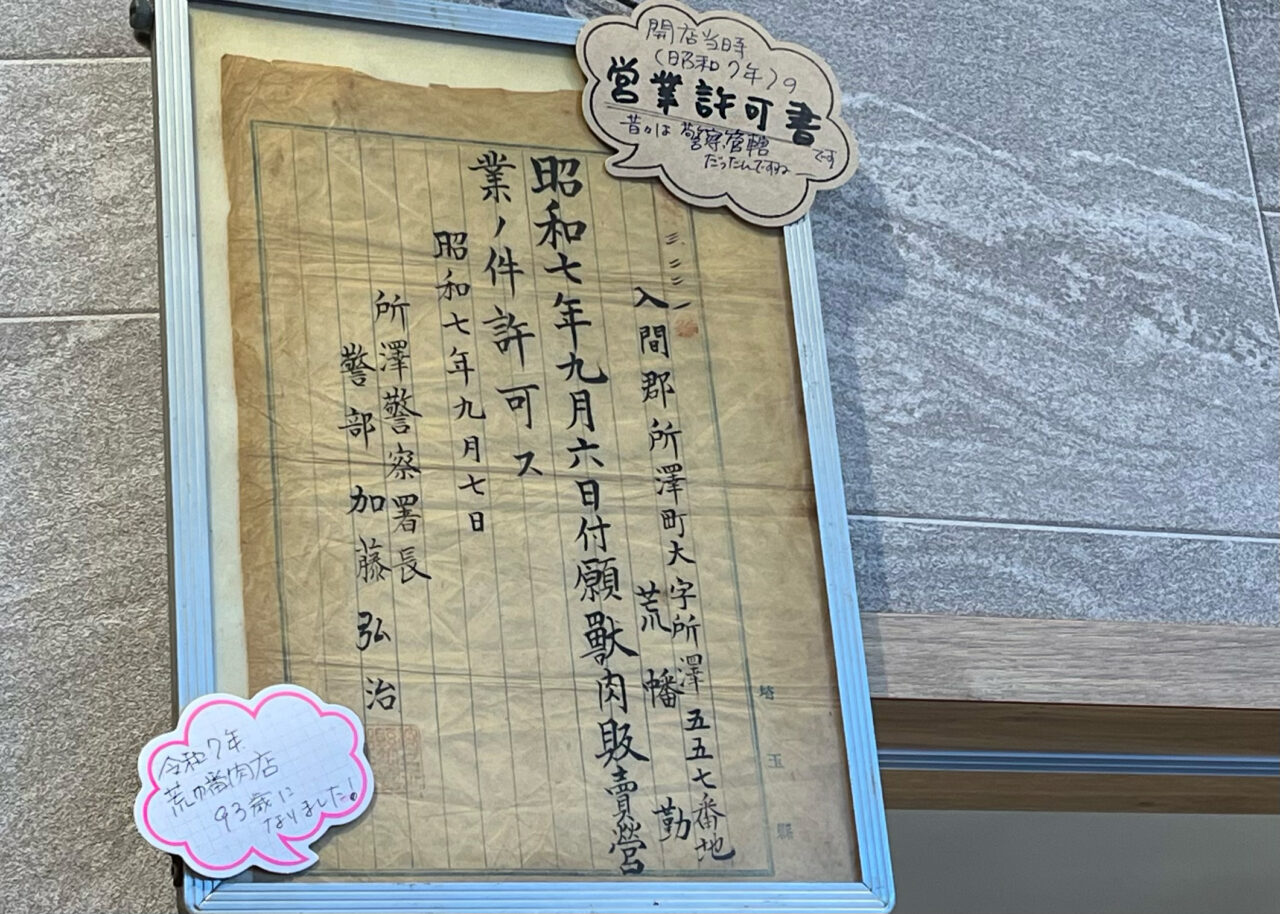 開店当時
(昭和7年)の
営業許可書
です
昔々は警察管轄
だったんですね
三、三三一
入間郡所澤町大字所澤五五七番地
荒幡勤
昭和七年九月六日付願獸肉販賣營
業ノ件許可ス
昭和七年九月七日
所澤警察署長
警部加藤弘治
埼玉縣
令和7年
荒幡肉店
93歳に
なりました!